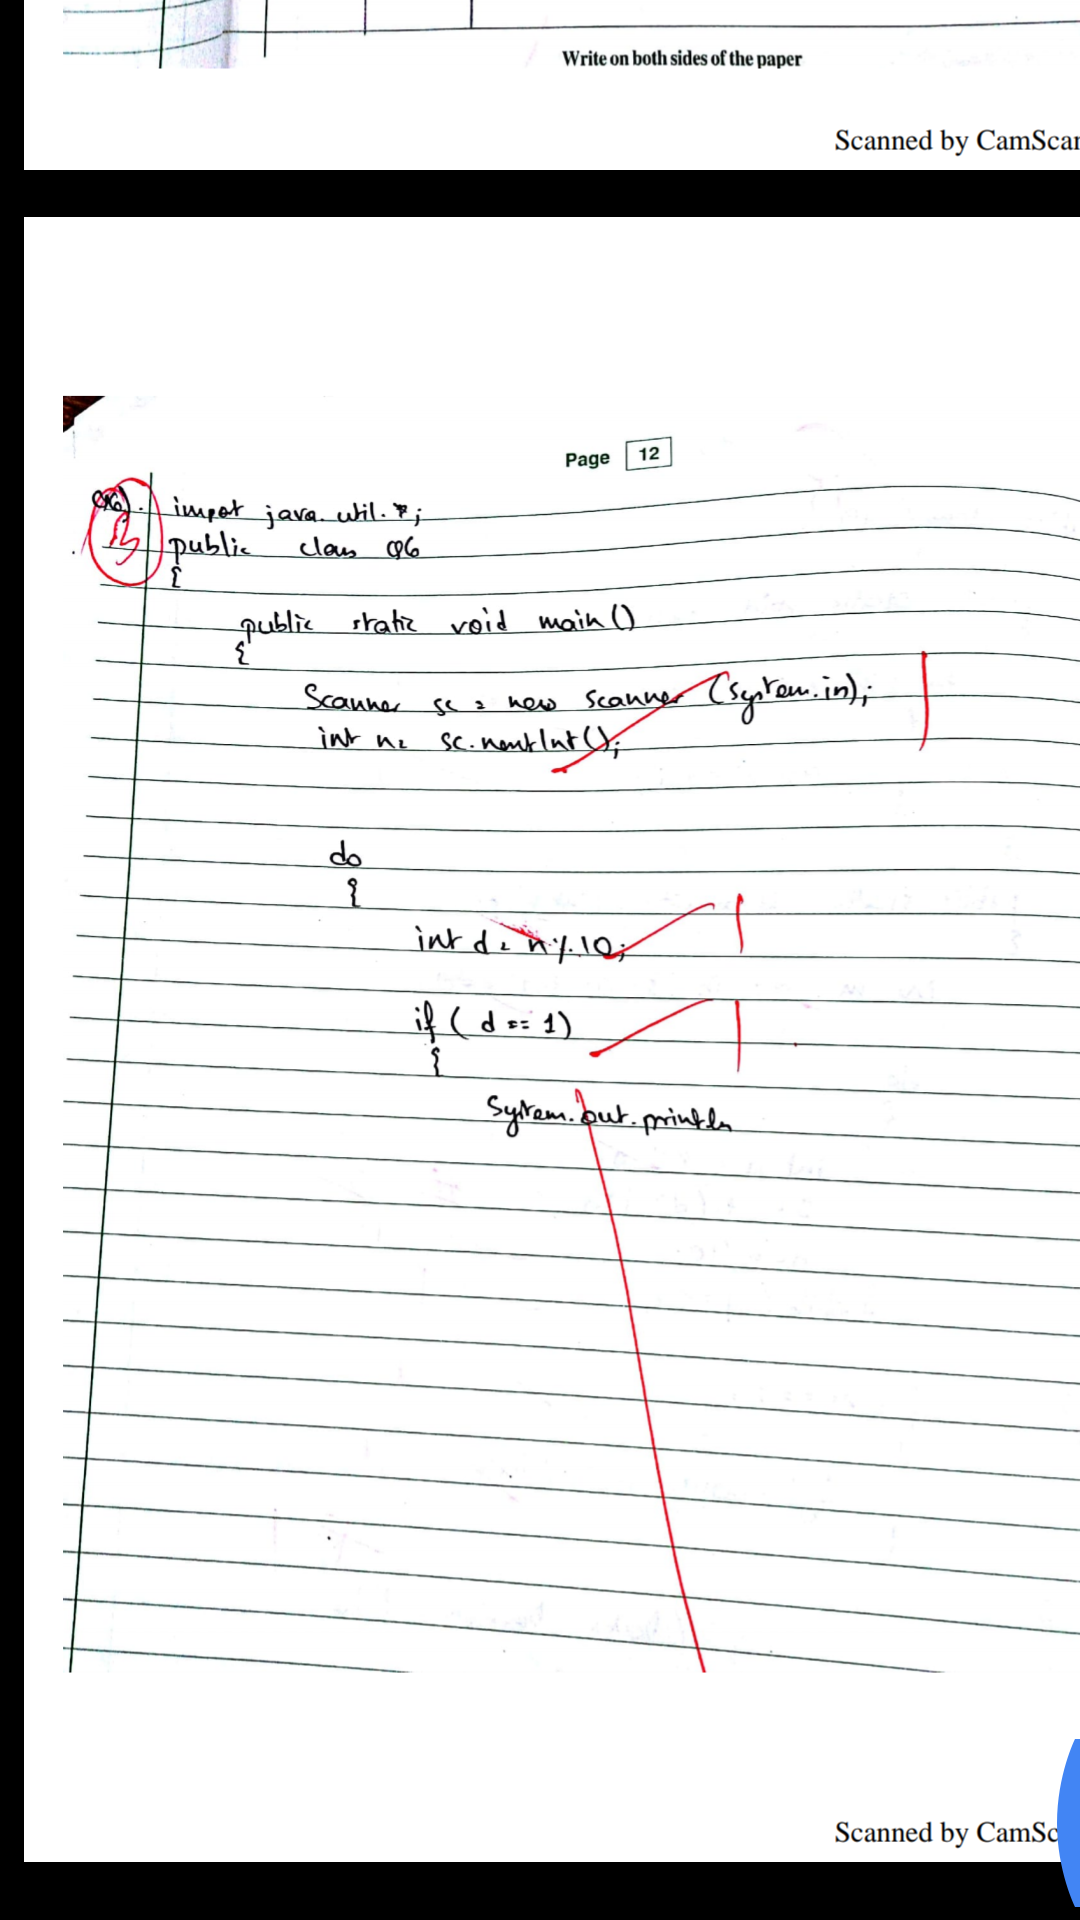 Write on both sides of the paper
Scanned by CamScan
Page 12
Q6).
3
impot java.util.*;
public class Q6
{
public static void main()
{
Scanner sc = new Scanner (System.in);
int n = sc.nextInt();
1
do
{
int d = n%.10;
1
if ( d == 1)
1
{
System.out.println
Scanned by CamSc